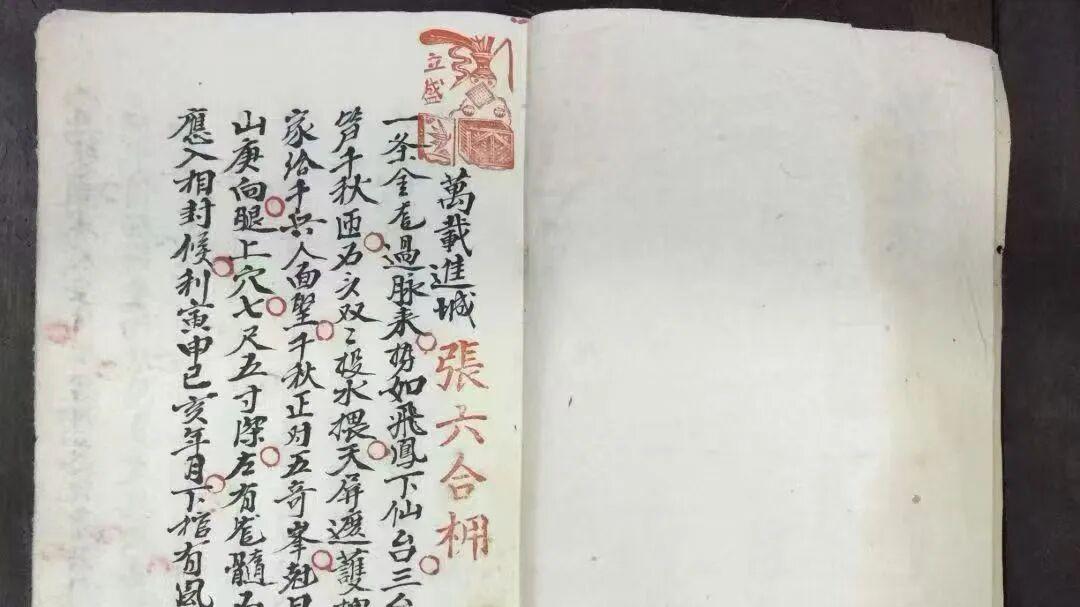 立盛
萬載進城 張六合枬
一条金尨過脉来势如飛鳳下仙台三台
笋千秋西石交双々投水捰天屏遮護
家给千兵人面墾千秋正对五奇峯
山庚向腿上穴七尺五寸深左有尨髓
應入相封候利寅申巳亥年月下棺有風